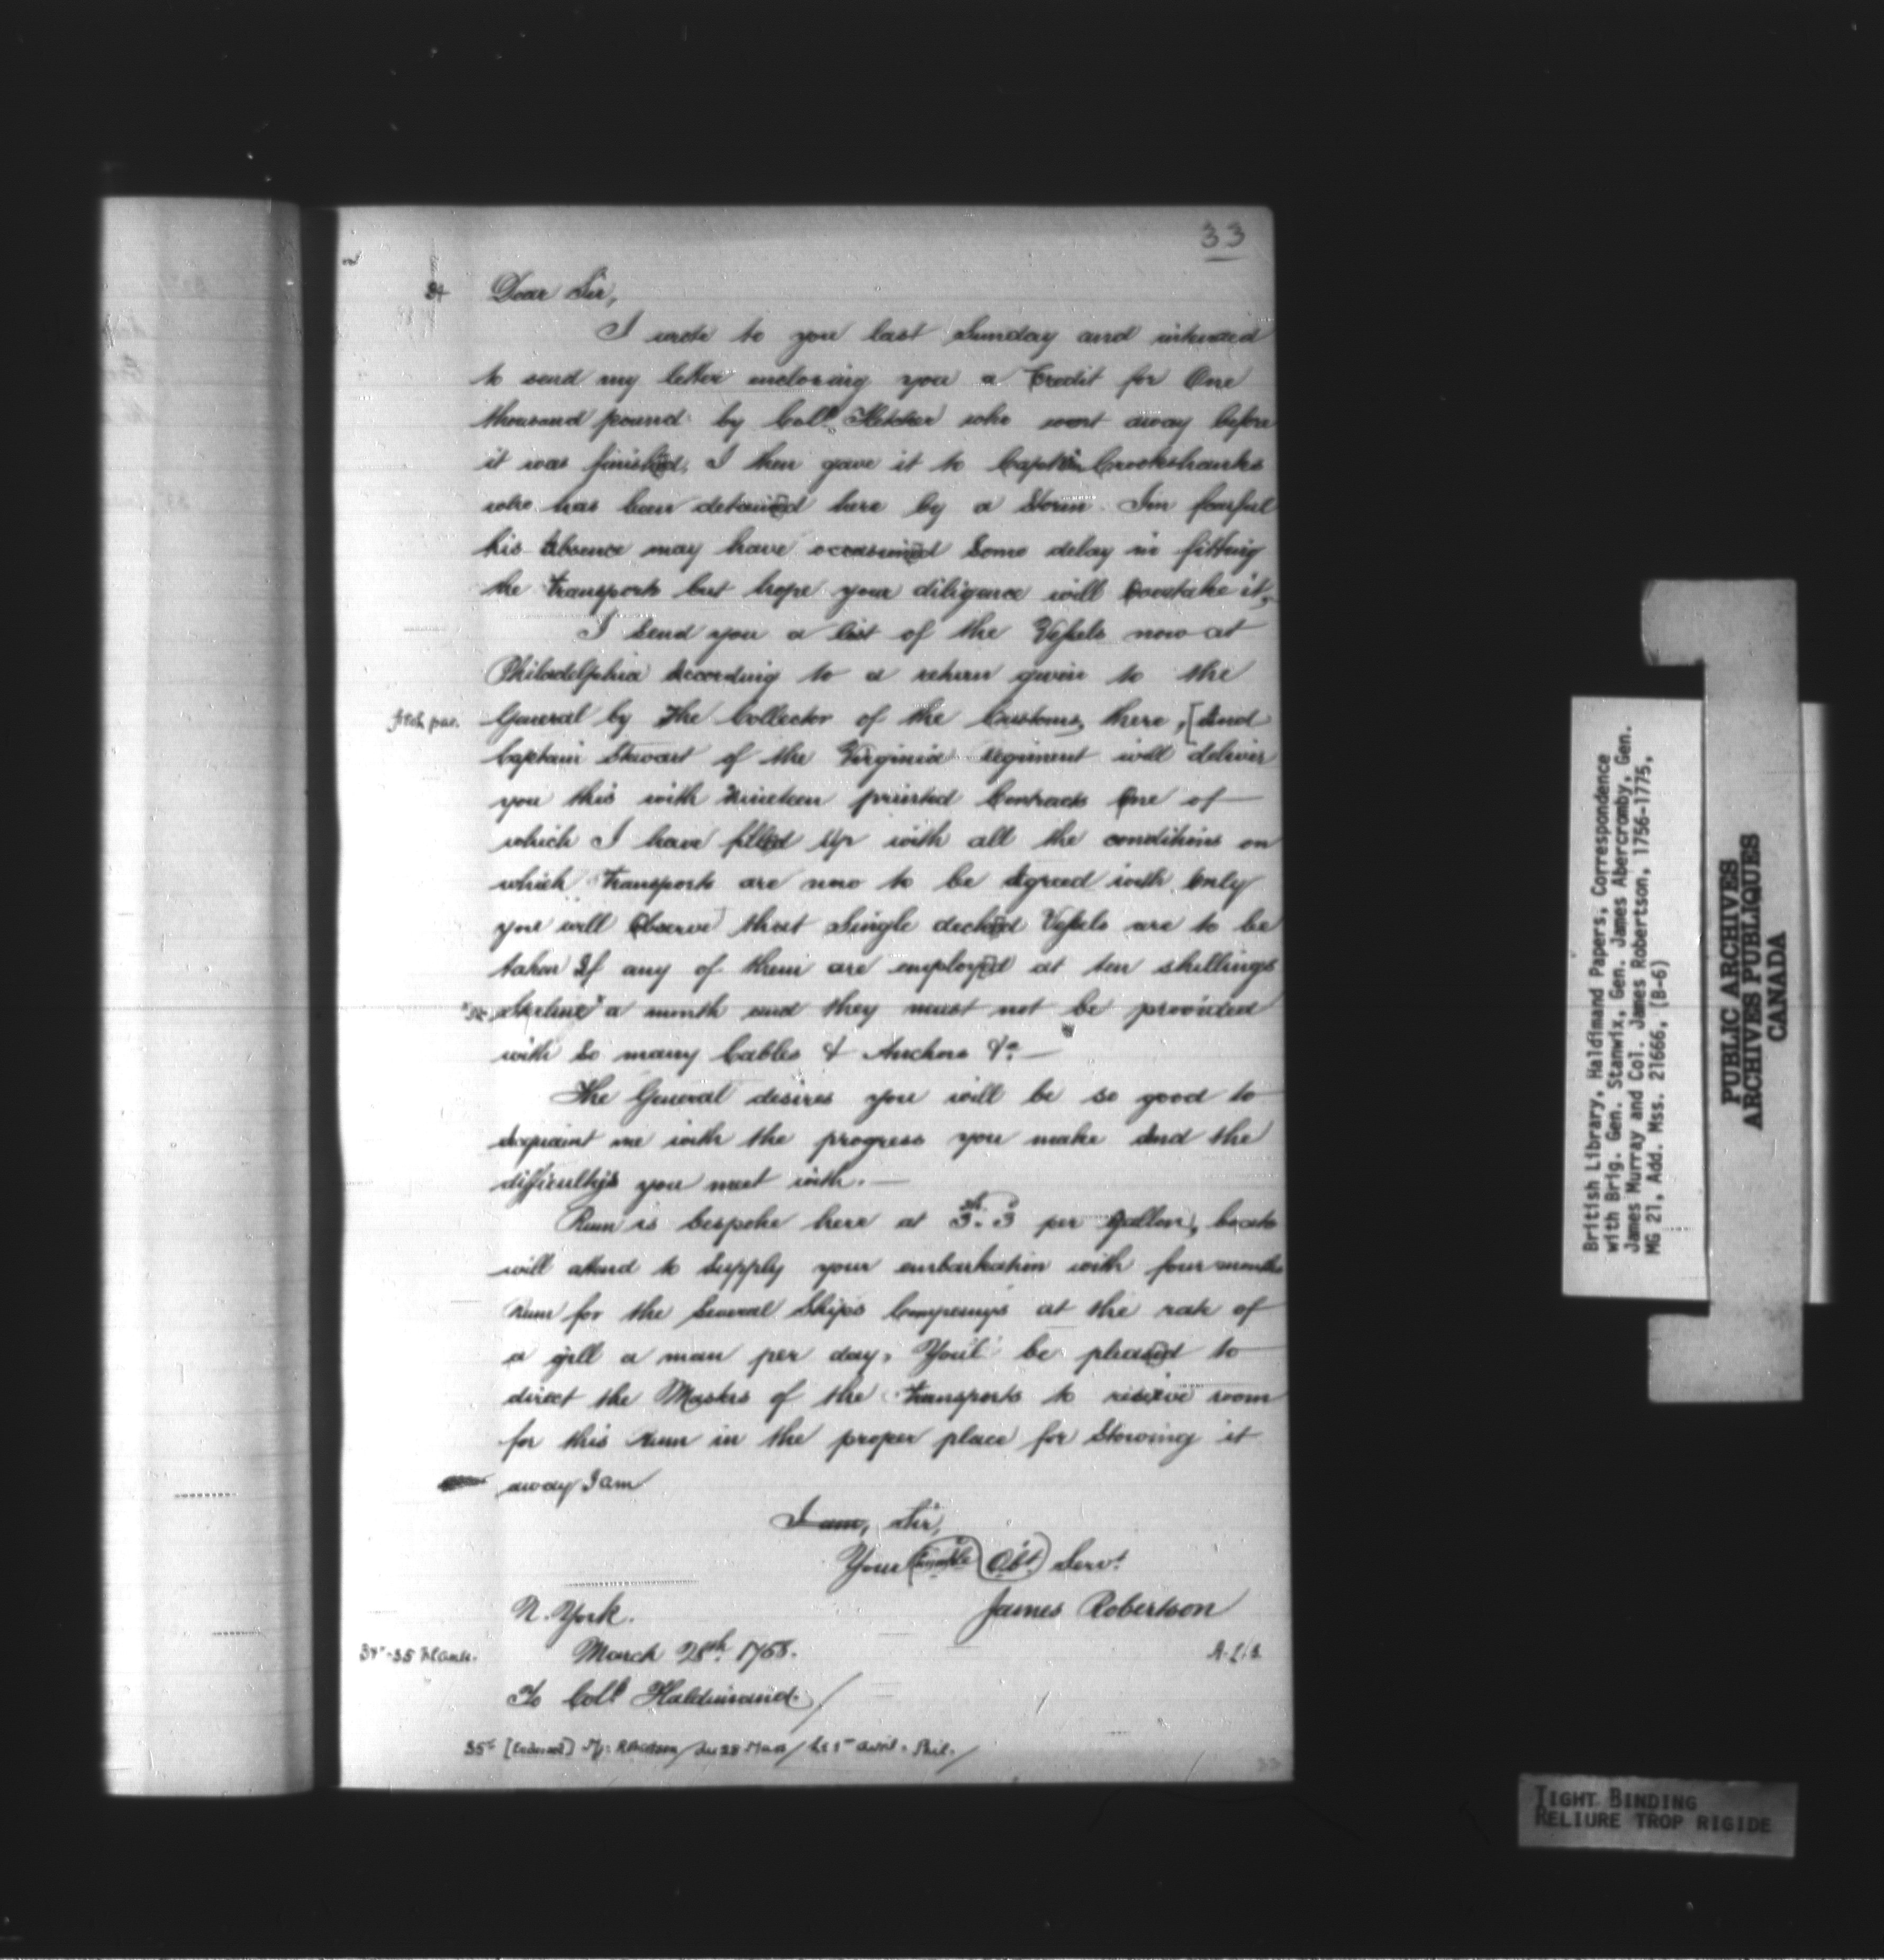 33
Dear Sir,
I wrote to you last Sunday and intended
to send my letter inclosing you a Credit for One
thousand pound by Coll. Fletcher who went away before
it was finished, I then gave it to Captain Crookshanks
who has been detained here by a Storm Im fearful
his absence may have occasioned Some delay in fitting
the transports but hope your diligence will overtake it,
I Send you a list of the Vessels now at
Philadelphia according to a return given to the
General by the Collector of the Customs, there, [And
fresh par.
Captain Stewart of the Virginia regiment will deliver
you this with nineteen printed Contracts One of
which I have filled Up with all the conditions on
which transports are now to be agreed with only
you will Observe that Single decked Vessels are to be
taken If any of them are employed at ten shillings
Sterline a month and they must not be provided
with So many Cables & Anchors &c.
The General desires you will be so good to
acquaint me with the progress you make and the
difficultys you meet with.
Rum is bespoke here at 3sh. 3 per gallon, boats
will attend to Supply your embarkation with four months
rum for the Several Ships Companys at the rate of
a gill a man per day, You'l be pleased to
direct the Masters of the transports to reserve room
for this rum in the proper place for Stowing it
away I am
I am, Sir,
Your humble Obt. Servt.
James Robertson
N. York.
March 28th. 1758.
A.L.S.
34-35 blank.
To Coll. Haldimand.
35v [Endorsed] Mj: Robertson / du 28 Mars / le 1r avril. Phil. /
33
British Library, Haldimand Papers, Correspondence
with Brig. Gen. Stanwix, Gen. James Abercromby, Gen.
James Murray and Col. James Robertson, 1756-1775,
MG 21, Add. Mss. 21666, (B-6)
PUBLIC ARCHIVES
ARCHIVES PUBLIQUES
CANADA
TIGHT BINDING
RELIURE TROP RIGIDE